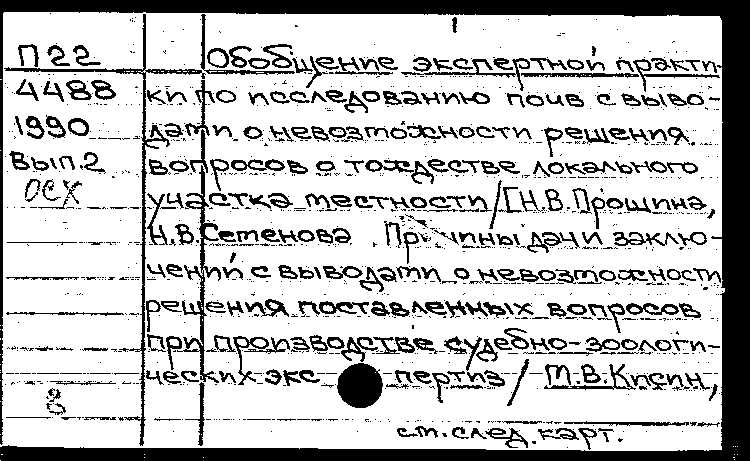 П22
4488
1990
Вып.2
ОСХ
Обобщение экспертной практи-
ки по исследованию почв с выво-
дами о невозможности решения
вопросов о тождестве локального
участка местности/[Н.В.Прошина,
Н.В.Семенова. Причины дачи заклю-
чений с выводами о невозможности
решения поставленных вопросов
при производстве судебно-зоологи-
ческих экспертиз / М.В.Кисин,
см.след.карт.